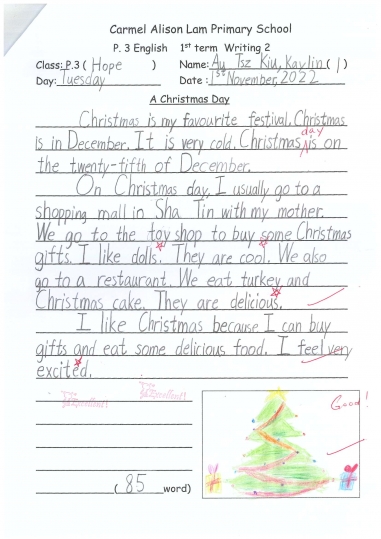 Carmel Alison Lam Primary School
P. 3 English 1st term Writing 2
Class: P.3 ( Hope ) Name: Au Tsz Kiu, Kaylin ( 1 )
Day: Tuesday Date : 1st November, 2022
A Christmas Day
Christmas is my favourite festival. Christmas
is in December. It is very cold. Christmas day is on
the twenty-fifth of December.
On Christmas day, I usually go to a
shopping mall in Sha Tin with my mother.
We go to the toy shop to buy some Christmas
gifts. I like dolls. They are cool. We also
go to a restaurant. We eat turkey and
Christmas cake. They are delicious.
I like Christmas because I can buy
gifts and eat some delicious food. I feel very
excited.
Excellent! Excellent!
Good!
( 85 word)